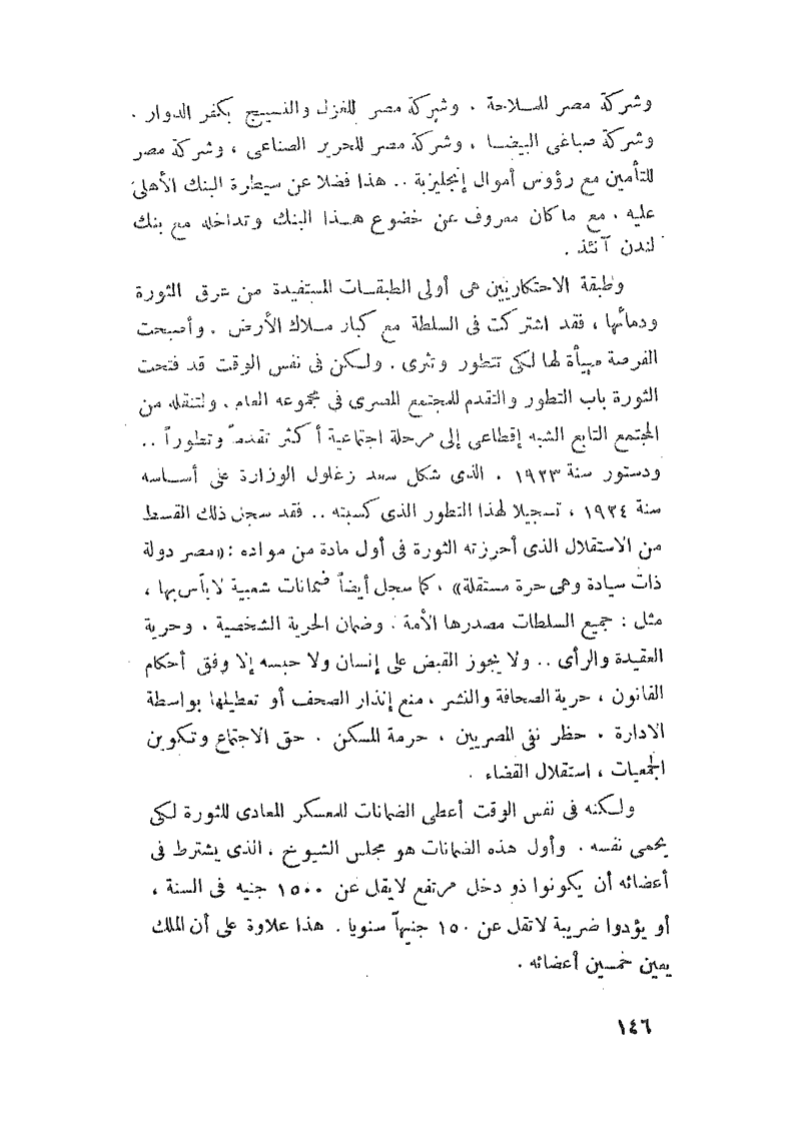 وشركة مصر للملاحة . وشركة مصر للغزل والنسيج بكفر الدوار .
وشركة صباغى البيضا ، وشركة مصر للحرير الصناعى ، وشركة مصر
للتأمين مع رؤوس أموال إنجليزية .. هذا فضلا عن سيطرة البنك الأهلى
عليه . مع ما كان معروف عن خضوع هذا البنك وتداخله مع بنك
لندن آنئذ .
وطبقة الاحتكاريين هى أولى الطبقات المستفيدة من عرق الثورة
ودمائها ، فقد اشتركت فى السلطة مع كبار ملاك الأرض . وأصبحت
الفرصة مهيأة لها لكى تتطور وتثرى . ولكن فى نفس الوقت قد فتحت
الثورة باب التطور والتقدم للمجتمع المصرى فى مجموعه العام . ولتنقله من
المجتمع التابع الشبه إقطاعى إلى مرحلة اجتماعية أكثر تقدماً وتطوراً ..
ودستور سنة ١٩٢٣ . الذى شكل سعد زغلول الوزارة على أساسه
سنة ١٩٢٤ ، تسجيلا لهذا التطور الذى كسبته .. فقد سجل ذلك القسط
من الاستقلال الذى أحرزته الثورة فى أول مادة من مواده : «مصر دولة
ذات سيادة وهى حرة مستقلة» ، كما سجل أيضاً ضمانات شعبية لا بأس بها ،
مثل : جميع السلطات مصدرها الأمة . وضمان الحرية الشخصية . وحرية
العقيدة والرأى .. ولا يجوز القبض على إنسان ولا حبسه إلا وفق أحكام
القانون ، حرية الصحافة والنشر ، منع إنذار الصحف أو تعطيلها بواسطة
الادارة . حظر نفى المصريين ، حرمة المسكن . حق الاجتماع وتكوين
الجمعيات ، استقلال القضاء .
ولكنه فى نفس الوقت أعطى الضمانات للمعسكر المعادى للثورة لكى
يحمى نفسه . وأول هذه الضمانات هو مجلس الشيوخ ، الذى يشترط فى
أعضائه أن يكونوا ذو دخل مرتفع لايقل عن ١٥٠٠ جنيه فى السنة ،
أو يؤدوا ضريبة لاتقل عن ١٥٠ جنيهاً سنويا . هذا علاوة على أن الملك
يعين خمسين أعضائه .
١٤٦